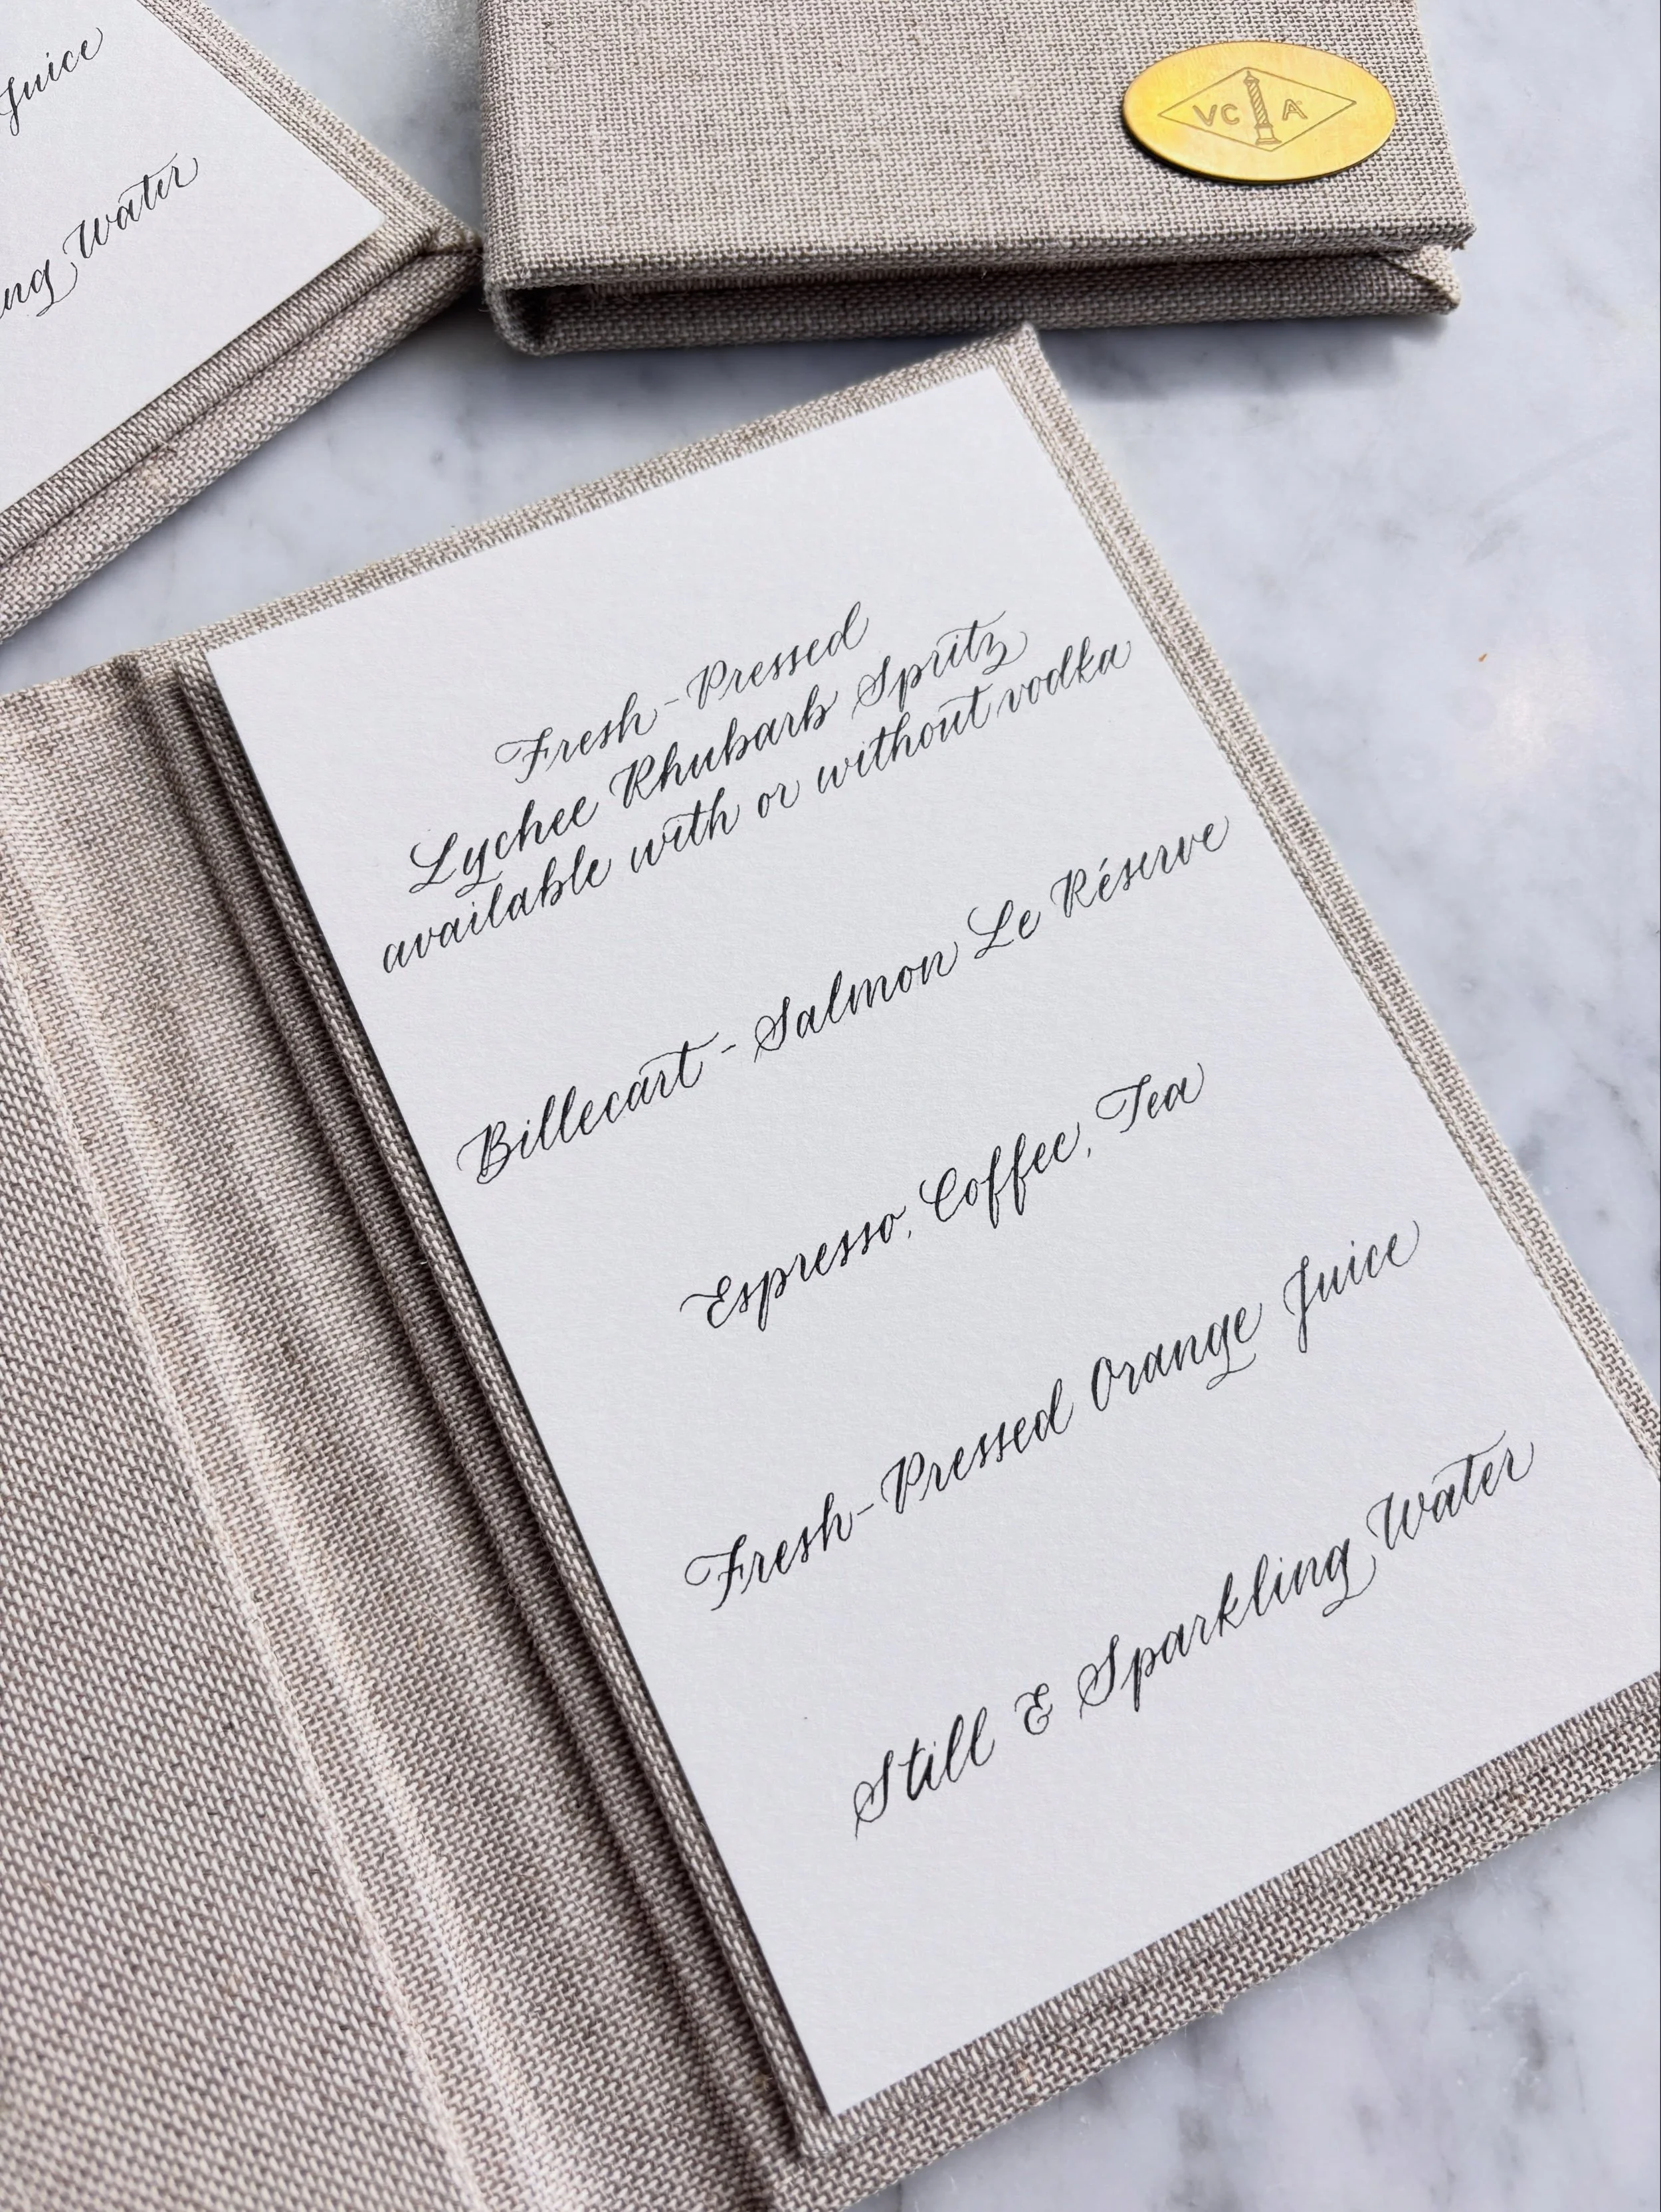 Juice
Water
VC A
Fresh-Pressed
Lychee Rhubarb Spritz
available with or without vodka
Billecart-Salmon Le Réserve
Espresso, Coffee, Tea
Fresh-Pressed Orange Juice
Still & Sparkling Water